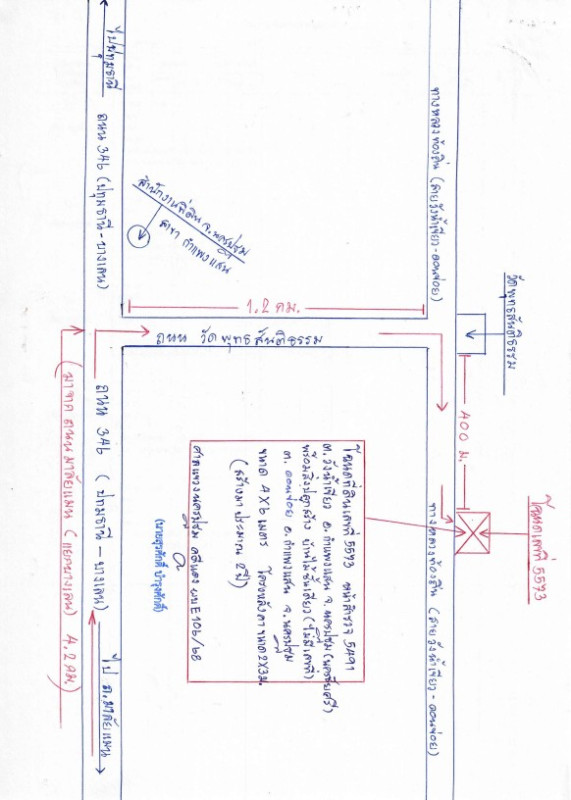 ไปปทุมธานี
ถนน 346 (ปทุมธานี-บางเลน)
สำนักงานที่ดิน จ.นครปฐม
สาขา กำแพงแสน
ทางหลวงท้องถิ่น (สายวังน้ำเขียว-ดอนข่อย)
วัดพุทธสันติธรรม
1.2 กม.
ถนน วัดพุทธสันติธรรม
400 ม.
โฉนดเลขที่ 5573
โฉนดที่ดินเลขที่ 5573 หน้าสำรวจ 5491
ต.วังน้ำเขียว อ.กำแพงแสน จ.นครปฐม
พร้อมสิ่งปลูกสร้าง บ้านไม้ชั้นเดียว (ไม่มีเลขที่)
ต.ดอนข่อย อ.กำแพงแสน จ.นครปฐม
ขนาด 4X6 เมตร โครงหลังคาขนาด 2X3ม.
(สร้างมาประมาณ 2 ปี)
ศาลแขวงนครปฐม คดีแดง ผบE106/62
(นายสุรศักดิ์ บำรุงศักดิ์)
ทางหลวงท้องถิ่น (สายวังน้ำเขียว-ดอนข่อย)
ถนน 346 (ปทุมธานี-บางเลน)
ไป ถ.มาลัยแมน
(มาจาก ถนนมาลัยแมน (แยกบางเลน) 4.2 กม.)